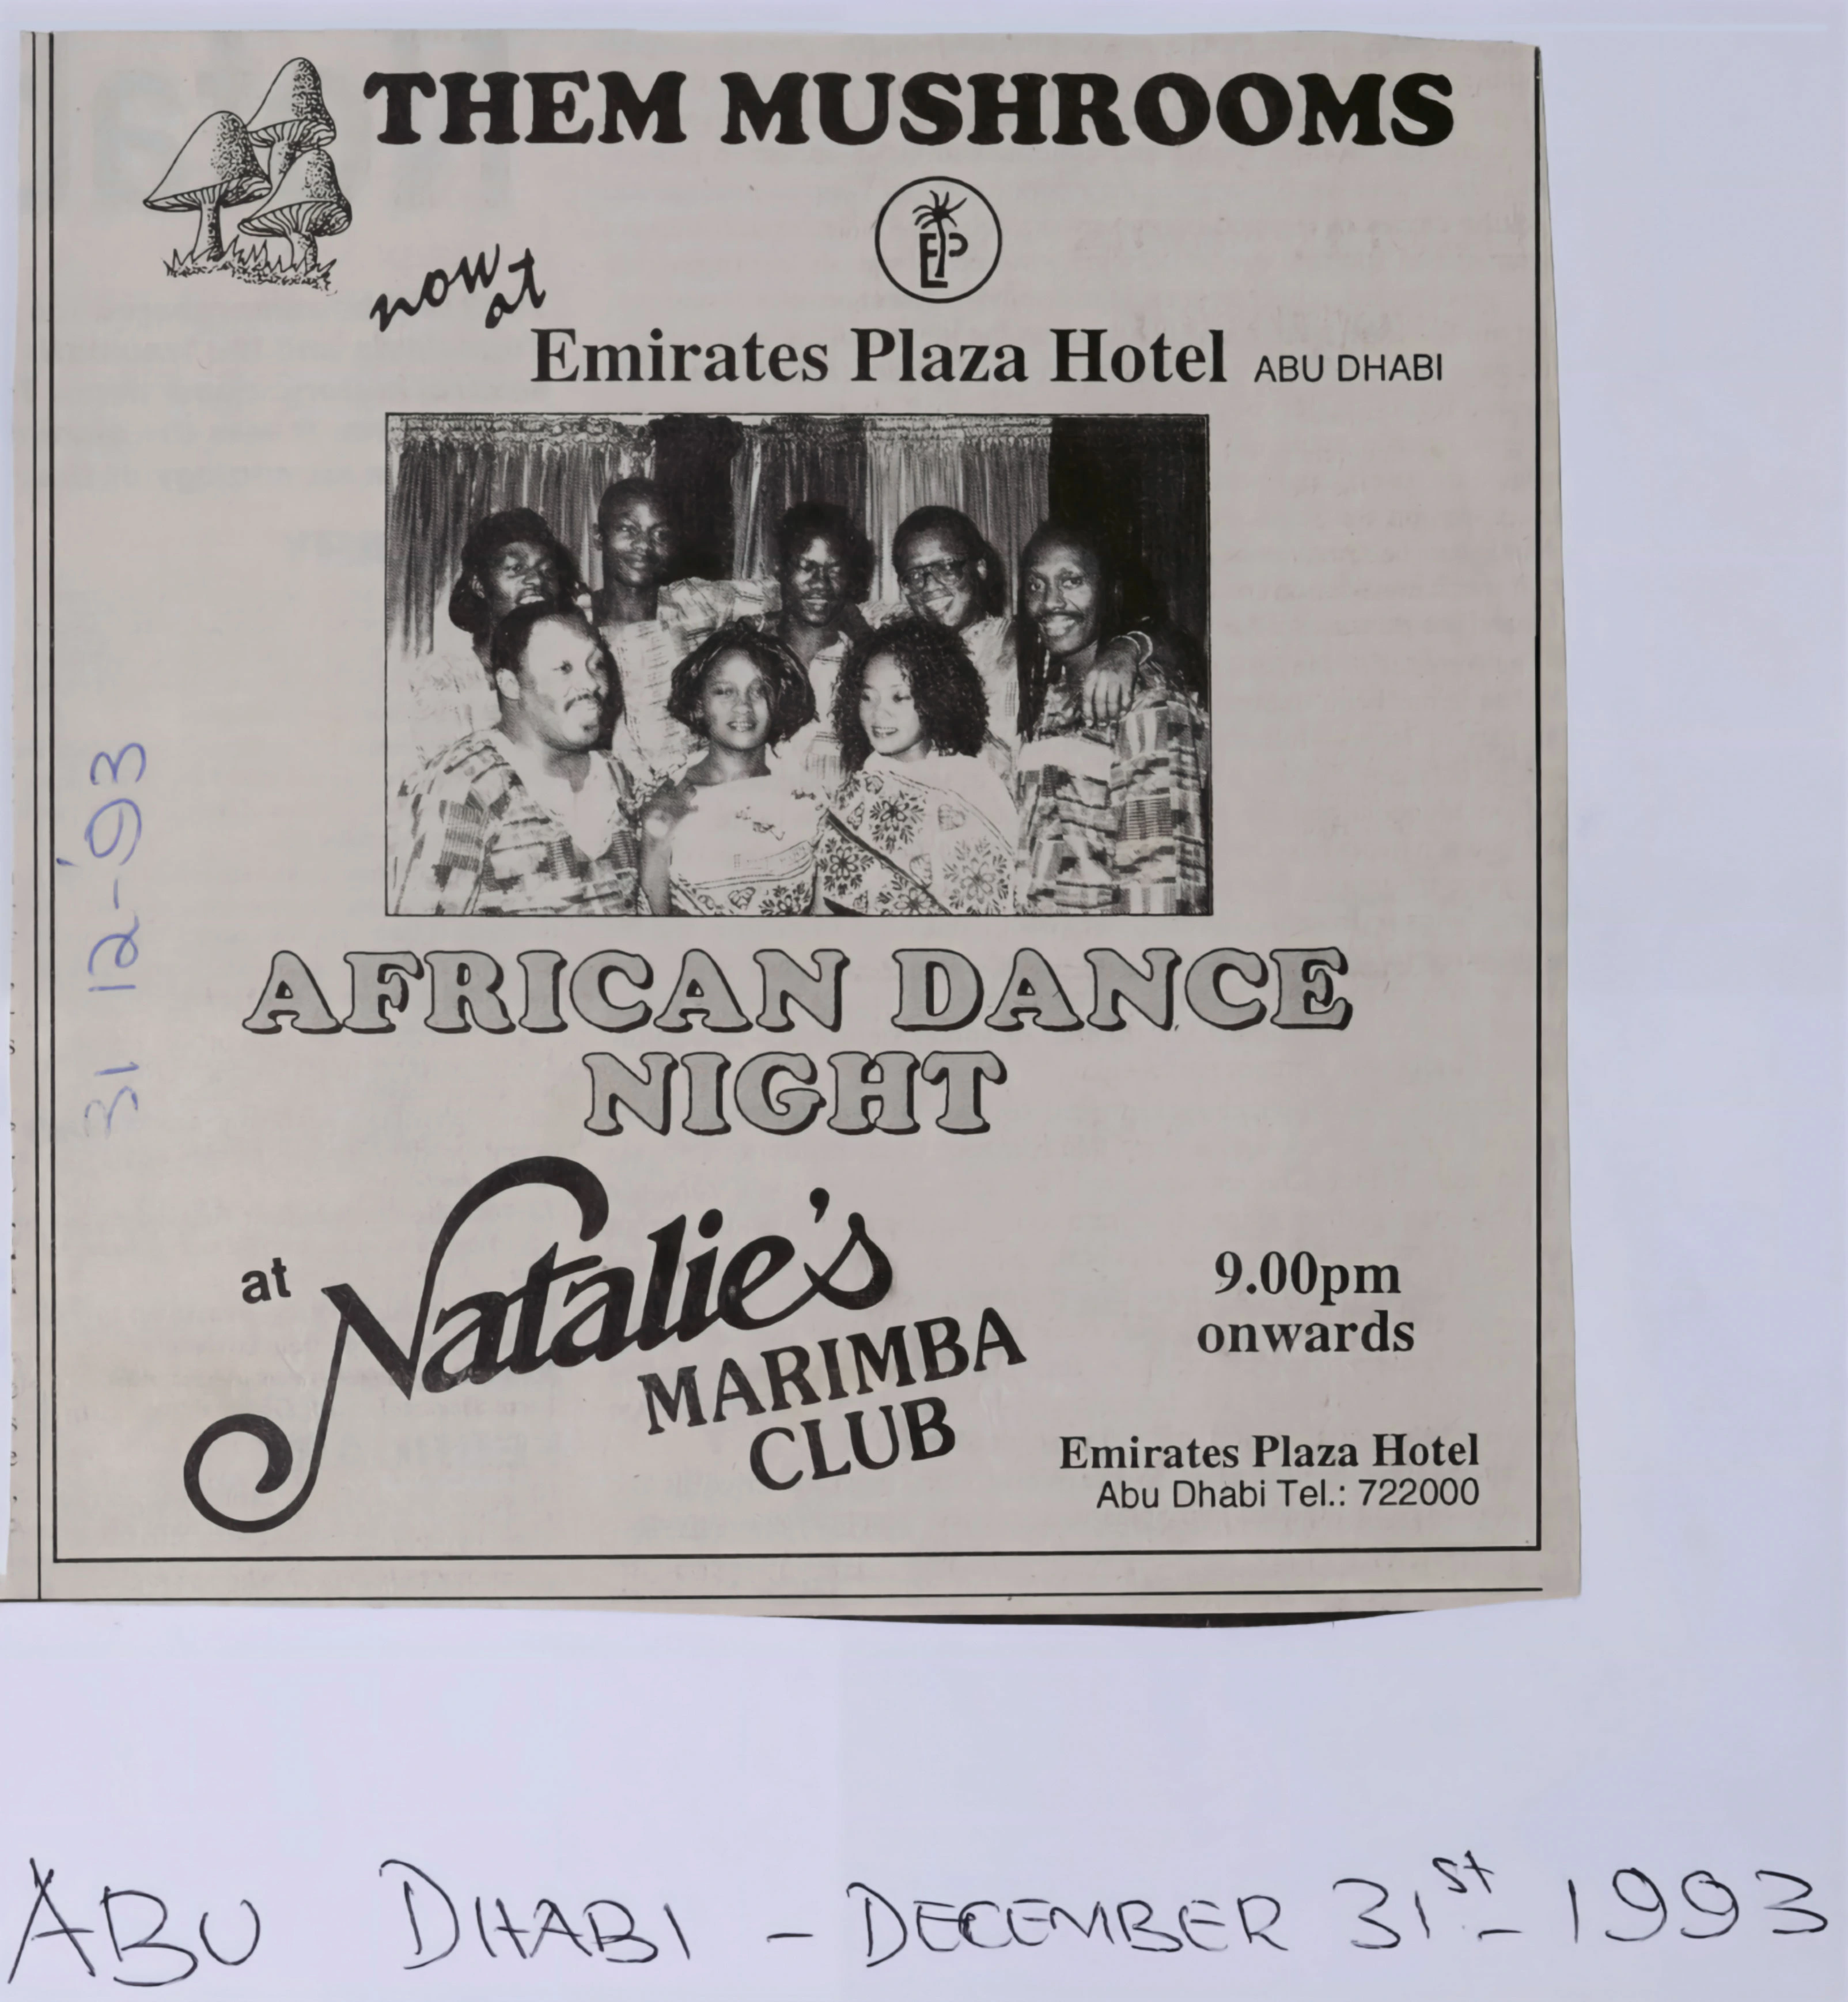 THEM MUSHROOMS
EP
now at
Emirates Plaza Hotel ABU DHABI
31 12-'93
AFRICAN DANCE
NIGHT
at Natalie's
MARIMBA
CLUB
9.00pm
onwards
Emirates Plaza Hotel
Abu Dhabi Tel.: 722000
ABU DHABI - DECEMBER 31st - 1993